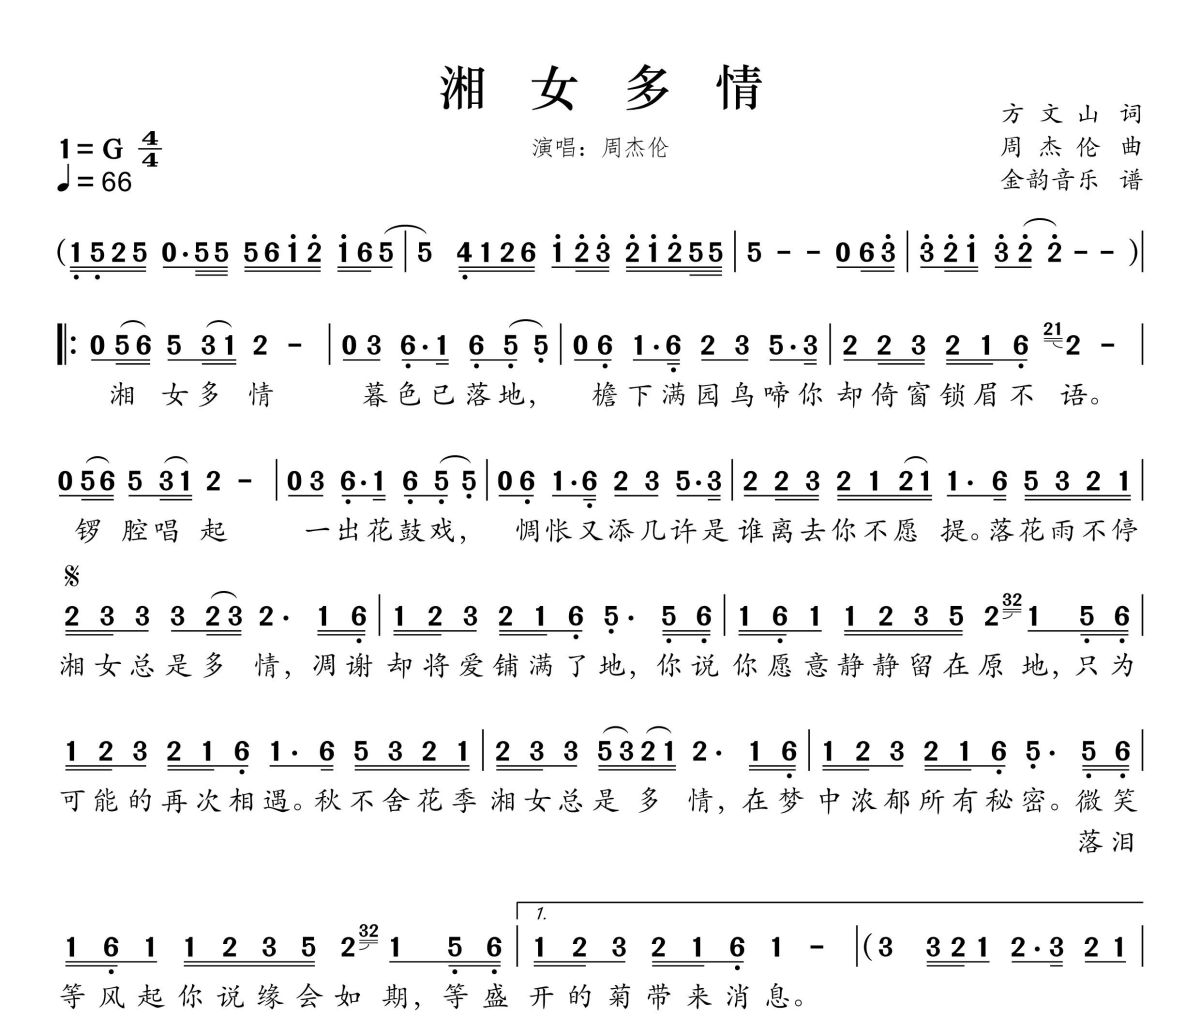 湘女多情
方文山 词
1=G 4/4
演唱：周杰伦
周杰伦 曲
♩=66
金韵音乐 谱
(1525 0·55 56i2 i65 | 5 4126 i23 2i255 | 5 - - 063 | 32i 32 2 - - )|
‖: 056 531 2 - | 03 6·1 655 | 06 1·6 23 5·3 | 223 216 21 2 - |
湘女多情 暮色已落地， 檐下满园鸟啼你却倚窗锁眉不语。
056 531 2 - | 03 6·1 655 | 06 1·6 23 5·3 | 223 2121 1·6 5321 |
锣腔唱起 一出花鼓戏， 惆怅又添几许是谁离去你不愿提。落花雨不停
𝄋
233 323 2· 16 | 123 216 5· 56 | 161 1235 2 32 1 56 |
湘女总是多情，凋谢却将爱铺满了地，你说你愿意静静留在原地，只为
123 216 1·6 5321 | 233 5321 2· 16 | 123 216 5· 56 |
可能的再次相遇。秋不舍花季湘女总是多情，在梦中浓郁所有秘密。微笑
落泪
1.
161 1235 2 32 1 56 | 123 216 1 - | (3 321 2·3 21 |
等风起你说缘会如期，等盛开的菊带来消息。